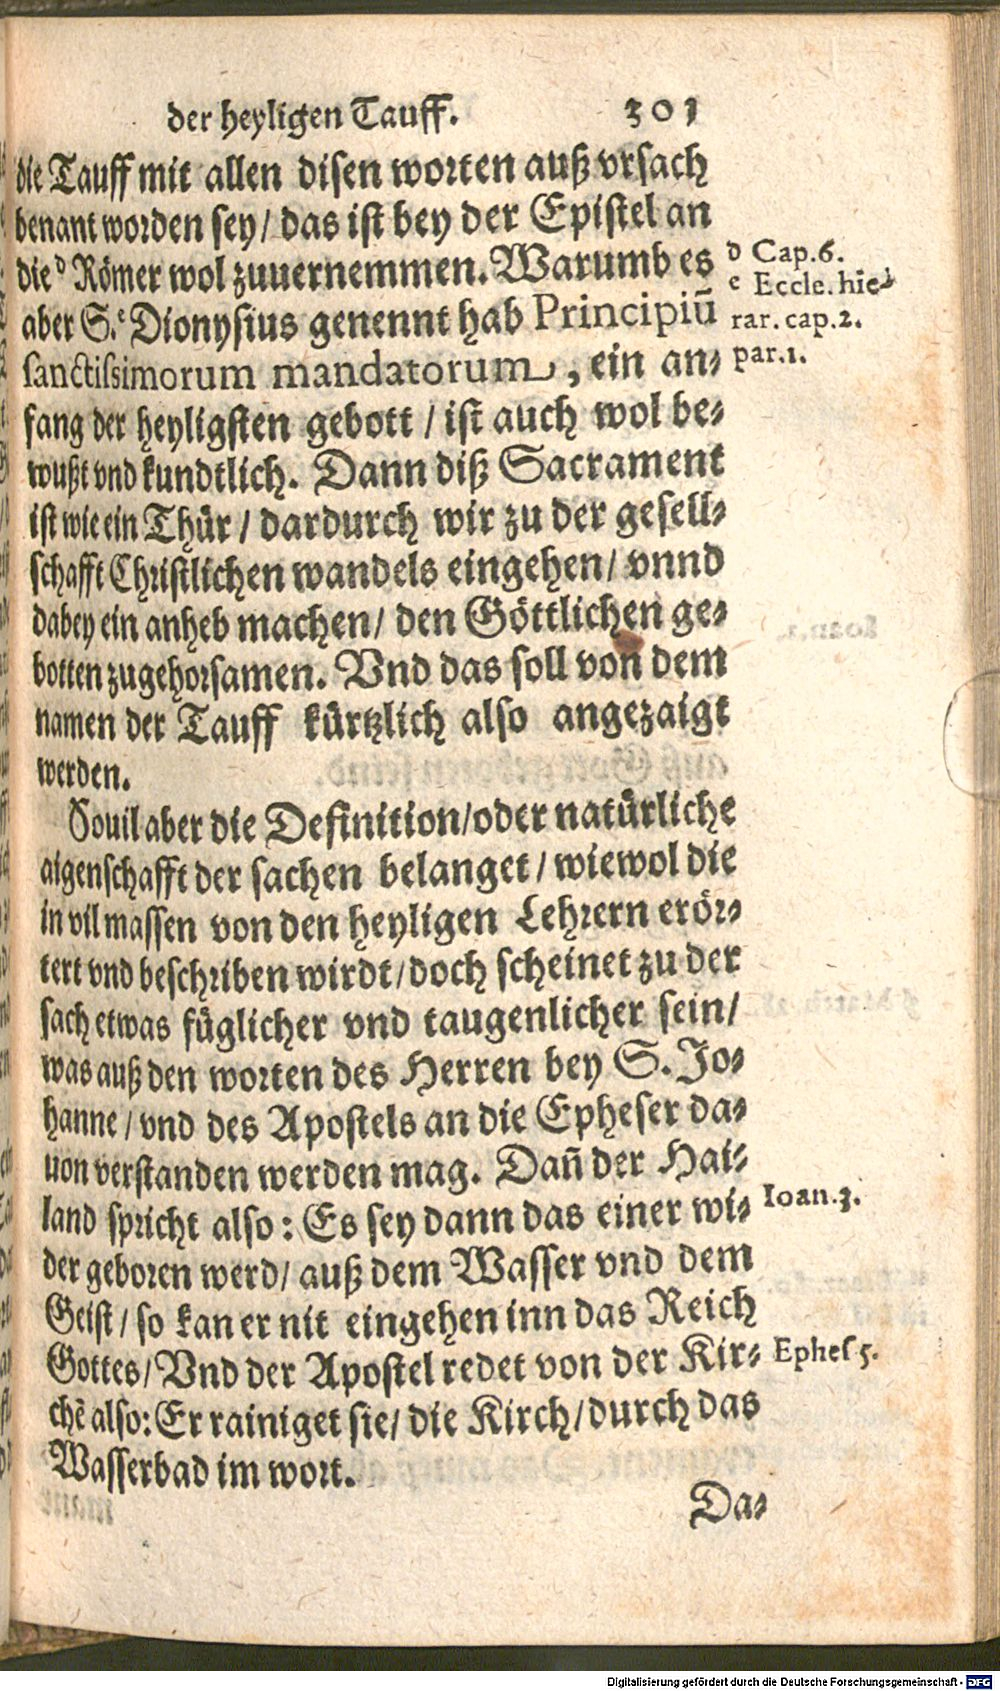 der heyligen Tauff. 301
die Tauff mit allen disen worten auß vrsach
benant worden sey / das ist bey der Epistel an
die ᵈ Römer wol zuuernemmen. Warumb es
ᵈ Cap. 6.
aber S. ᵉ Dionysius genennt hab Principiū
ᵉ Eccle. hie-
rar. cap. 2.
sanctissimorum mandatorum, ein an-
par. 1.
fang der heyligsten gebott / ist auch wol be-
wußt vnd kundtlich. Dann diß Sacrament
ist wie ein Thür / dardurch wir zu der gesell-
schafft Christlichen wandels eingehen / vnnd
dabey ein anheb machen / den Göttlichen ge-
botten zugehorsamen. Vnd das soll von dem
namen der Tauff kürtzlich also angezaigt
werden.
Souil aber die Definition / oder natürliche
aigenschafft der sachen belanget / wiewol die
in vil massen von den heyligen Lehrern erör-
tert vnd beschriben wirdt / doch scheinet zu der
sach etwas füglicher vnd taugenlicher sein /
was auß den worten des Herren bey S. Jo-
hanne / vnd des Apostels an die Epheser da-
uon verstanden werden mag. Dañ der Hai-
land spricht also: Es sey dann das einer wi-
Ioan. 3.
der geboren werd / auß dem Wasser vnd dem
Geist / so kan er nit eingehen inn das Reich
Gottes / Vnd der Apostel redet von der Kir-
Ephes. 5.
chē also: Er rainiget sie / die Kirch / durch das
Wasserbad im wort.
Da-
Digitalisierung gefördert durch die Deutsche Forschungsgemeinschaft - DFG